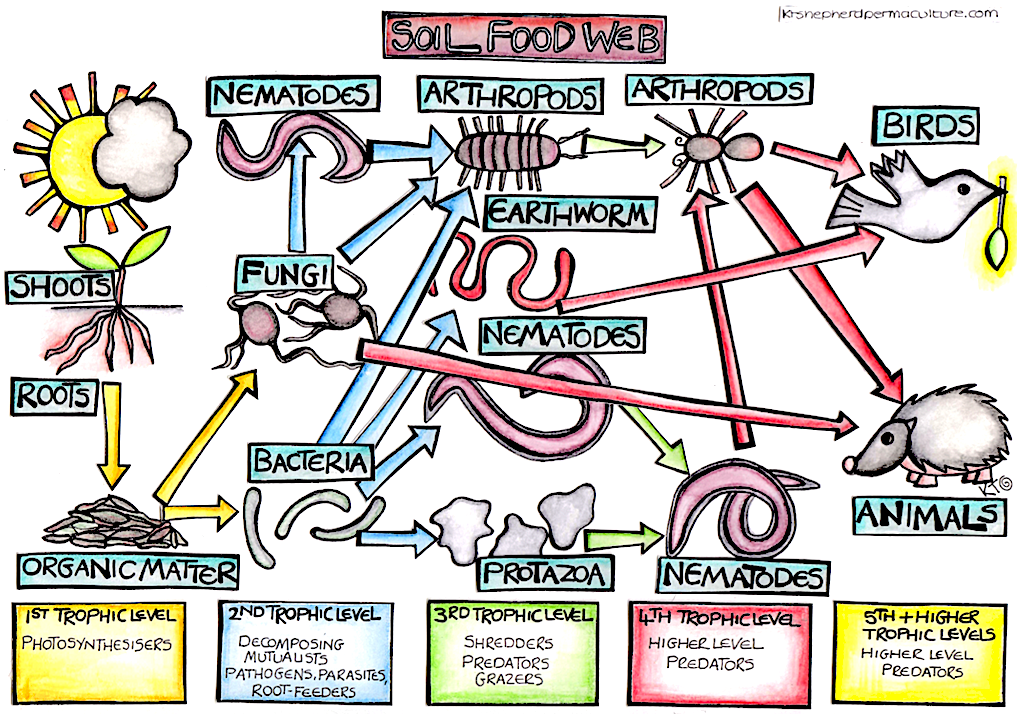 krshepherdpermaculture.com
SOIL FOOD WEB
NEMATODES
ARTHROPODS
ARTHROPODS
BIRDS
EARTHWORM
SHOOTS
FUNGI
NEMATODES
ROOTS
BACTERIA
KT©
ANIMALS
ORGANIC MATTER
PROTAZOA
NEMATODES
1ST TROPHIC LEVEL
PHOTOSYNTHESISERS
2ND TROPHIC LEVEL
DECOMPOSING
MUTUALISTS
PATHOGENS, PARASITES,
ROOT-FEEDERS
3RD TROPHIC LEVEL
SHREDDERS
PREDATORS
GRAZERS
4TH TROPHIC LEVEL
HIGHER LEVEL
PREDATORS
5TH + HIGHER
TROPHIC LEVELS
HIGHER LEVEL
PREDATORS